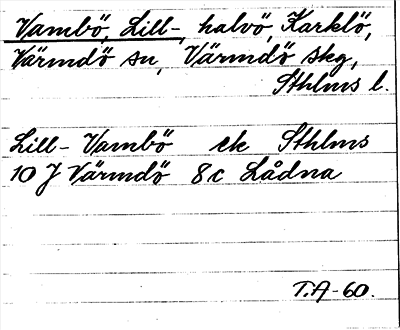 Vambö, Lill-, halvö, Karklö,
Värmdö sn, Värmdö skg,
Sthlms l.
Lill-Vambö ek Sthlms
10 J Värmdö 8c Lådna
T.A-60.